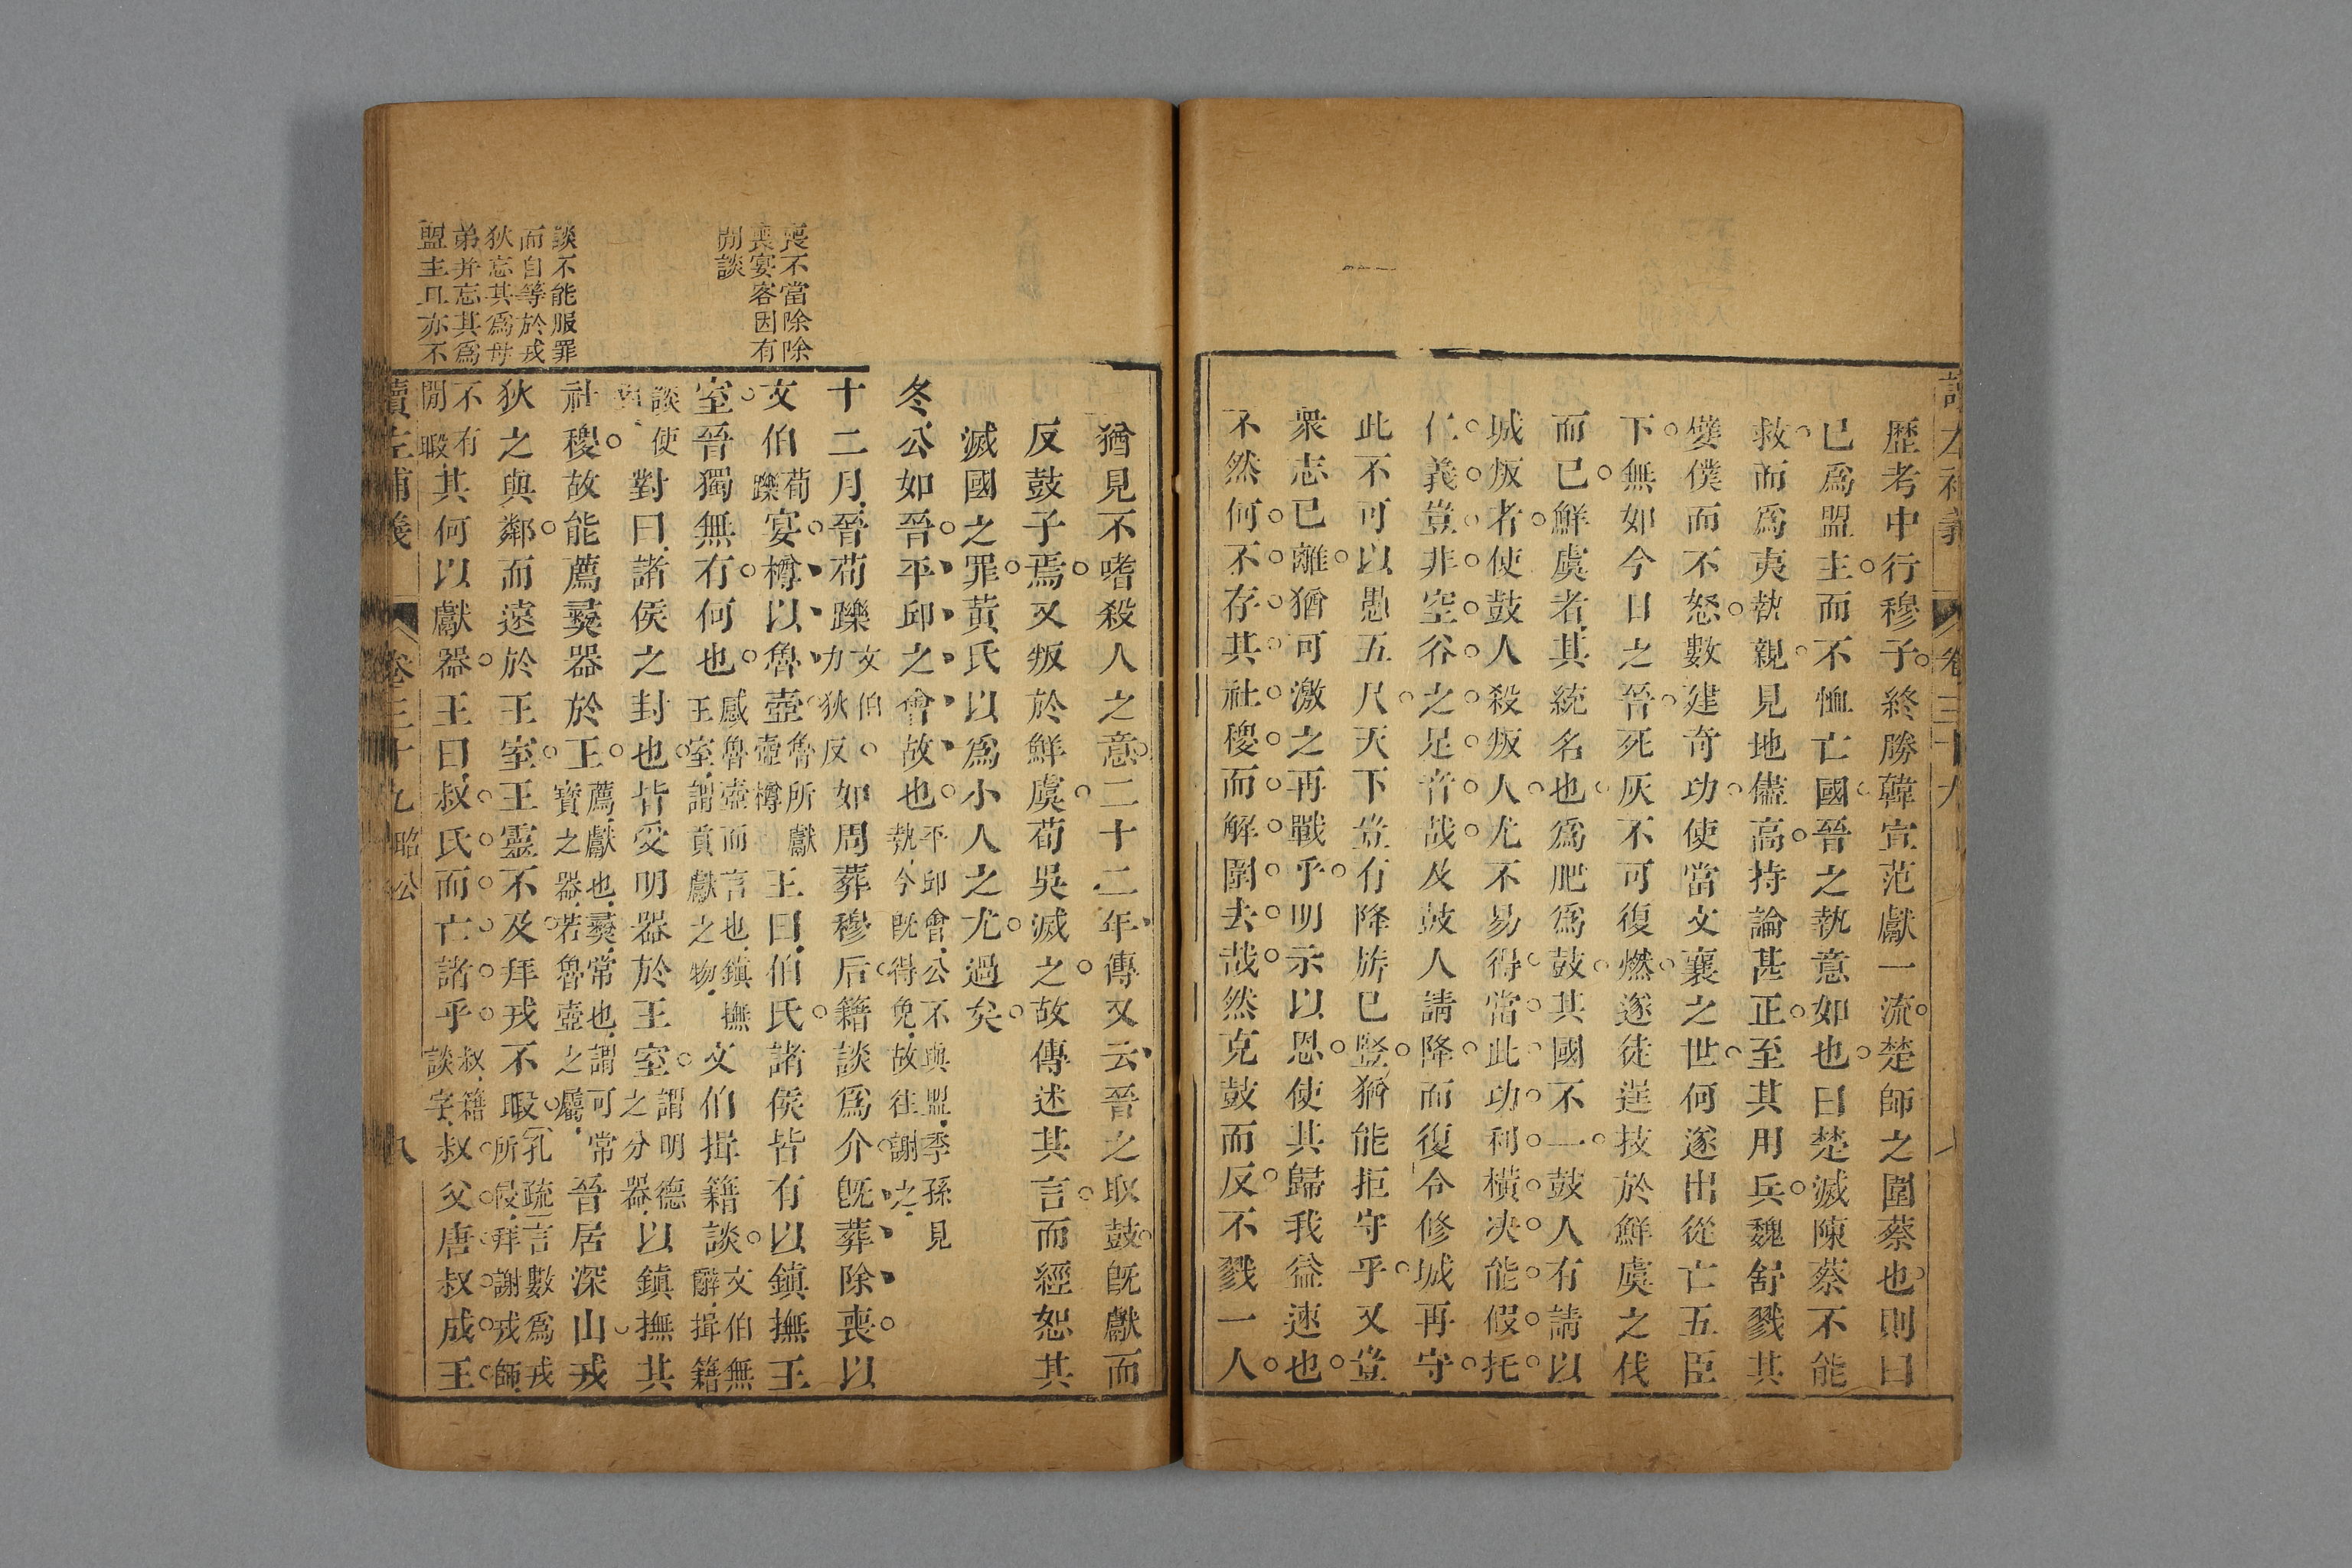 歷考中行穆子終勝韓宣范獻一流楚師之圍蔡也則曰
已爲盟主而不恤亡國晉之執意如也曰楚滅陳蔡不能
救而爲夷執親見地儘高持論甚正至其用兵魏舒戮其
嬖僕而不怒數建奇功使當文襄之世何遂出從亡五臣
下無如今日之晉死灰不可復燃遂徒逞技於鮮虞之伐
而已鮮虞者其統名也爲肥爲鼓其國不一鼓人有請以
城叛者使鼓人殺叛人尤不易得當此功利橫決能假托
仁義豈非空谷之足音哉及鼓人請降而復令修城再守
此不可以愚五尺天下豈有降旂已豎猶能拒守乎又豈
衆志已離猶可激之再戰乎明示以恩使其歸我益速也
不然何不存其社稷而解圍去哉然克鼓而反不戮一人
猶見不嗜殺人之意二十二年傳又云晉之取鼓既獻而
反鼓子焉又叛於鮮虞荀吳滅之故傳述其言而經恕其
滅國之罪黃氏以爲小人之尤過矣
冬公如晉平邱之會故也平邱會公不與盟季孫見執今既得免故往謝之
十二月晉荀躒文伯力狄反如周葬穆后籍談爲介既葬除喪以
文伯荀躒宴樽以魯壺魯所獻壺樽王曰伯氏諸侯皆有以鎮撫王
室晉獨無有何也感魯壺而言也鎮撫王室謂貢獻之物文伯揖籍談文伯無辭揖籍
談使對曰諸侯之封也皆受明器於王室謂明德之分器以鎮撫其
社稷故能薦彝器於王薦獻也彝常也謂可常寶之器若魯壺之屬晉居深山戎
狄之與鄰而遠於王室王靈不及拜戎不暇孔疏言數爲戎所侵拜謝戎師
不有閒暇其何以獻器王曰叔氏而亡諸乎叔籍談字叔父唐叔成王
喪不當除除
喪宴客因有
閒談
談不能服罪
而自等於戎
狄忘其爲母
弟并忘其爲
盟主且亦不
讀左補義 卷三十九 昭公 八